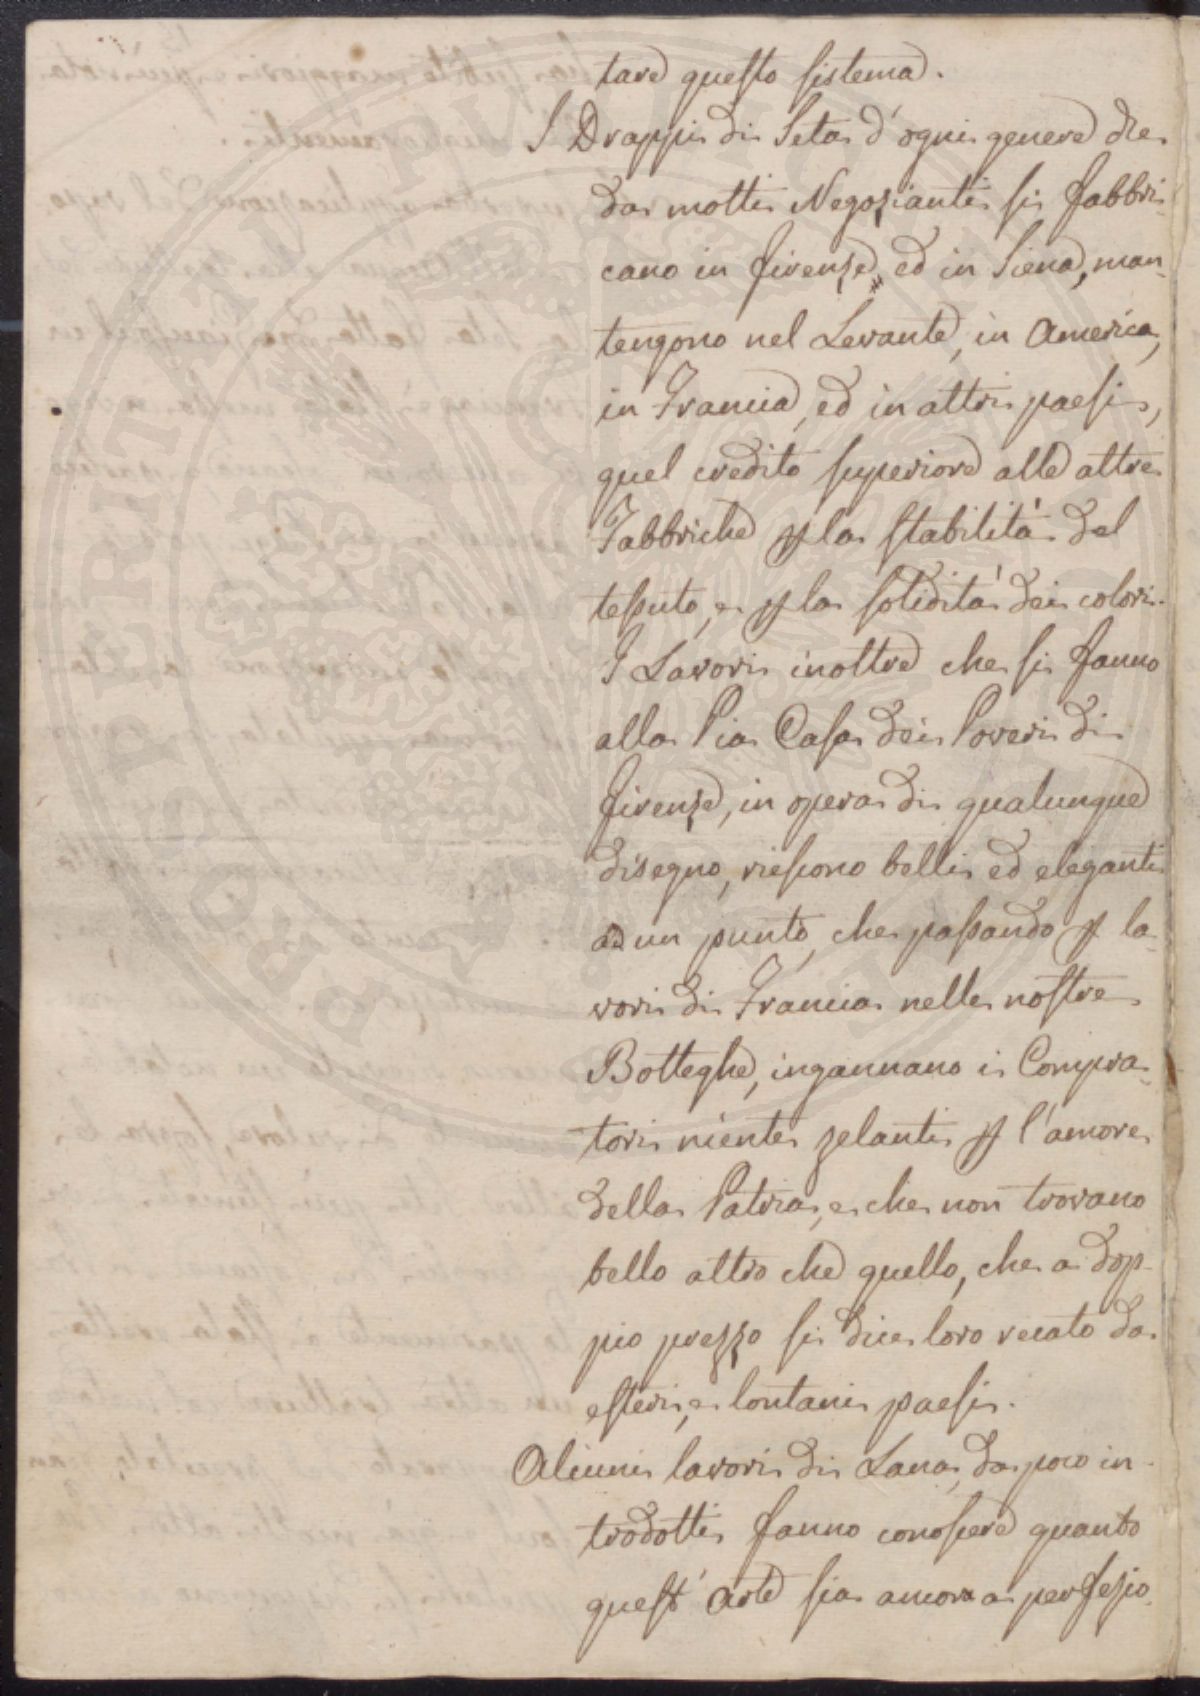 tare questo sistema.
I Drappi di Seta d'ogni genere che
da molti Negozianti si fabbri-
cano in Firenze, ed in Siena, man-
tengono nel Levante, in America,
in Francia, ed in altri paesi,
quel credito superiore alle altre
Fabbriche p la stabilità del
tessuto, e p la solidità dei colori.
I Lavori inoltre che si fanno
alla Pia Casa dei Poveri di
Firenze, in opera di qualunque
disegno, riescono belli ed eleganti
ad un punto, che passando p la-
vori di Francia nelle nostre
Botteghe, ingannano i Compra-
tori niente zelanti p l'amore
della Patria, e che non trovano
bello altro che quello, che a dop-
pio prezzo si dice loro recato da
esteri, e lontani paesi.
Alcuni lavori di Lana, da poco in-
trodotti fanno conoscere quanto
quest'Arte sia ancora perfezio-
PROSPERITATI PVBLICAE